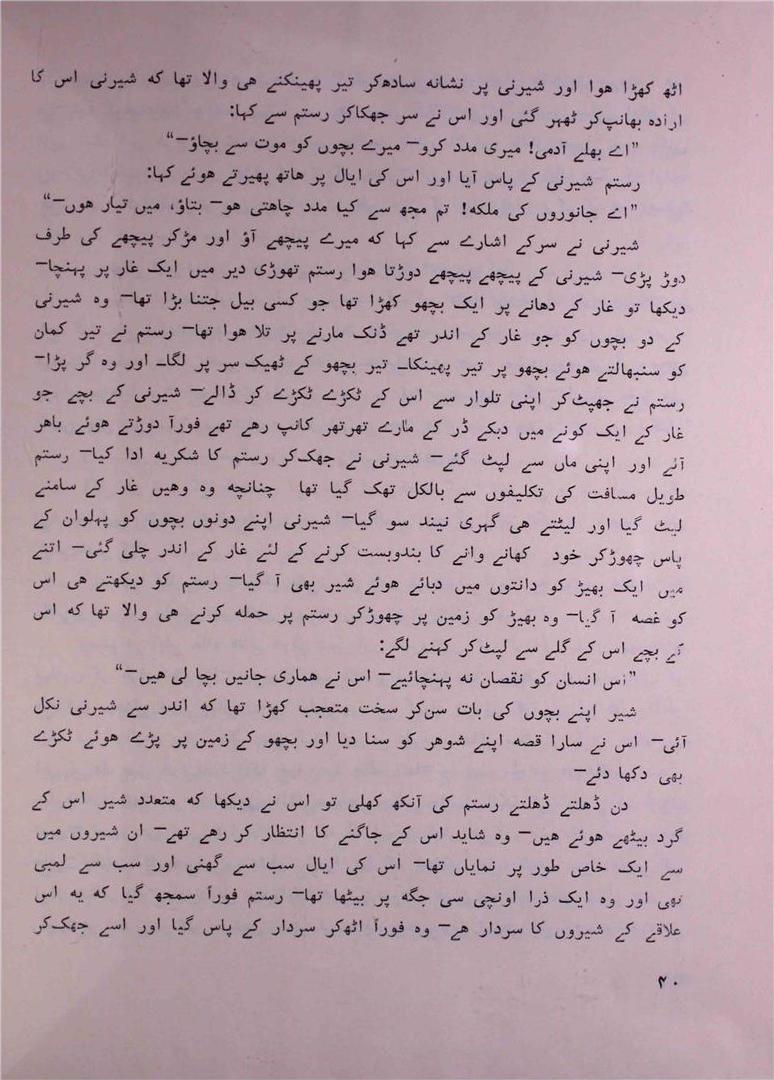 اٹھ کھڑا ھوا اور شیرنی پر نشانہ سادھ‌کر تیر پھینکنے ھی والا تھا کہ شیرنی اس کا
ارادہ بھانپ‌کر ٹھہر گئی اور اس نے سر جھکاکر رستم سے کہا:
”اے بھلے آدمی! میری مدد کرو— میرے بچوں کو موت سے بچاؤ—“
رستم شیرنی کے پاس آیا اور اس کی ایال پر ھاتھ پھیرتے ھوئے کہا:
”اے جانوروں کی ملکہ! تم مجھ سے کیا مدد چاھتی ھو— بتاؤ، میں تیار ھوں—“
شیرنی نے سرکے اشارے سے کہا کہ میرے پیچھے آؤ اور مڑکر پیچھے کی طرف
دوڑ پڑی— شیرنی کے پیچھے پیچھے دوڑتا ھوا رستم تھوڑی دیر میں ایک غار پر پہنچا—
دیکھا تو غار کے دھانے پر ایک بچھو کھڑا تھا جو کسی بیل جتنا بڑا تھا— وہ شیرنی
کے دو بچوں کو جو غار کے اندر تھے ڈنک مارنے پر تلا ھوا تھا— رستم نے تیر کمان
کو سنبھالتے ھوئے بچھو پر تیر پھینکا— تیر بچھو کے ٹھیک سر پر لگا— اور وہ گر پڑا—
رستم نے جھپٹ‌کر اپنی تلوار سے اس کے ٹکڑے ٹکڑے کر ڈالے— شیرنی کے بچے جو
غار کے ایک کونے میں دبکے ڈر کے مارے تھرتھر کانپ رھے تھے فورآ دوڑتے ھوئے باھر
آئے اور اپنی ماں سے لپٹ گئے— شیرنی نے جھک‌کر رستم کا شکریہ ادا کیا— رستم
طویل مسافت کی تکلیفوں سے بالکل تھک گیا تھا چنانچہ وہ وھیں غار کے سامنے
لیٹ گیا اور لیٹتے ھی گہری نیند سو گیا— شیرنی اپنے دونوں بچوں کو پہلوان کے
پاس چھوڑکر خود کھانے وانے کا بندوبست کرنے کے لئے غار کے اندر چلی گئی— اتنے
میں ایک بھیڑ کو دانتوں میں دبائے ھوئے شیر بھی آ گیا— رستم کو دیکھتے ھی اس
کو غصہ آ گیا— وہ بھیڑ کو زمین پر چھوڑکر رستم پر حملہ کرنے ھی والا تھا کہ اس
کے بچے اس کے گلے سے لپٹ‌کر کہنے لگے:
”اس انسان کو نقصان نہ پہنچائیے— اس نے ھماری جانیں بچا لی ھیں—“
شیر اپنے بچوں کی بات سن‌کر سخت متعجب کھڑا تھا کہ اندر سے شیرنی نکل
آئی— اس نے سارا قصہ اپنے شوھر کو سنا دیا اور بچھو کے زمین پر پڑے ھوئے ٹکڑے
بھی دکھا دئے—
دن ڈھلتے ڈھلتے رستم کی آنکھ کھلی تو اس نے دیکھا کہ متعدد شیر اس کے
گرد بیٹھے ھوئے ھیں— وہ شاید اس کے جاگنے کا انتظار کر رھے تھے— ان شیروں میں
سے ایک خاص طور پر نمایاں تھا— اس کی ایال سب سے گھنی اور سب سے لمبی
تھی اور وہ ایک ذرا اونچی سی جگہ پر بیٹھا تھا— رستم فورآ سمجھ گیا کہ یہ اس
علاقے کے شیروں کا سردار ھے— وہ فورآ اٹھ‌کر سردار کے پاس گیا اور اسے جھک‌کر
۴۰